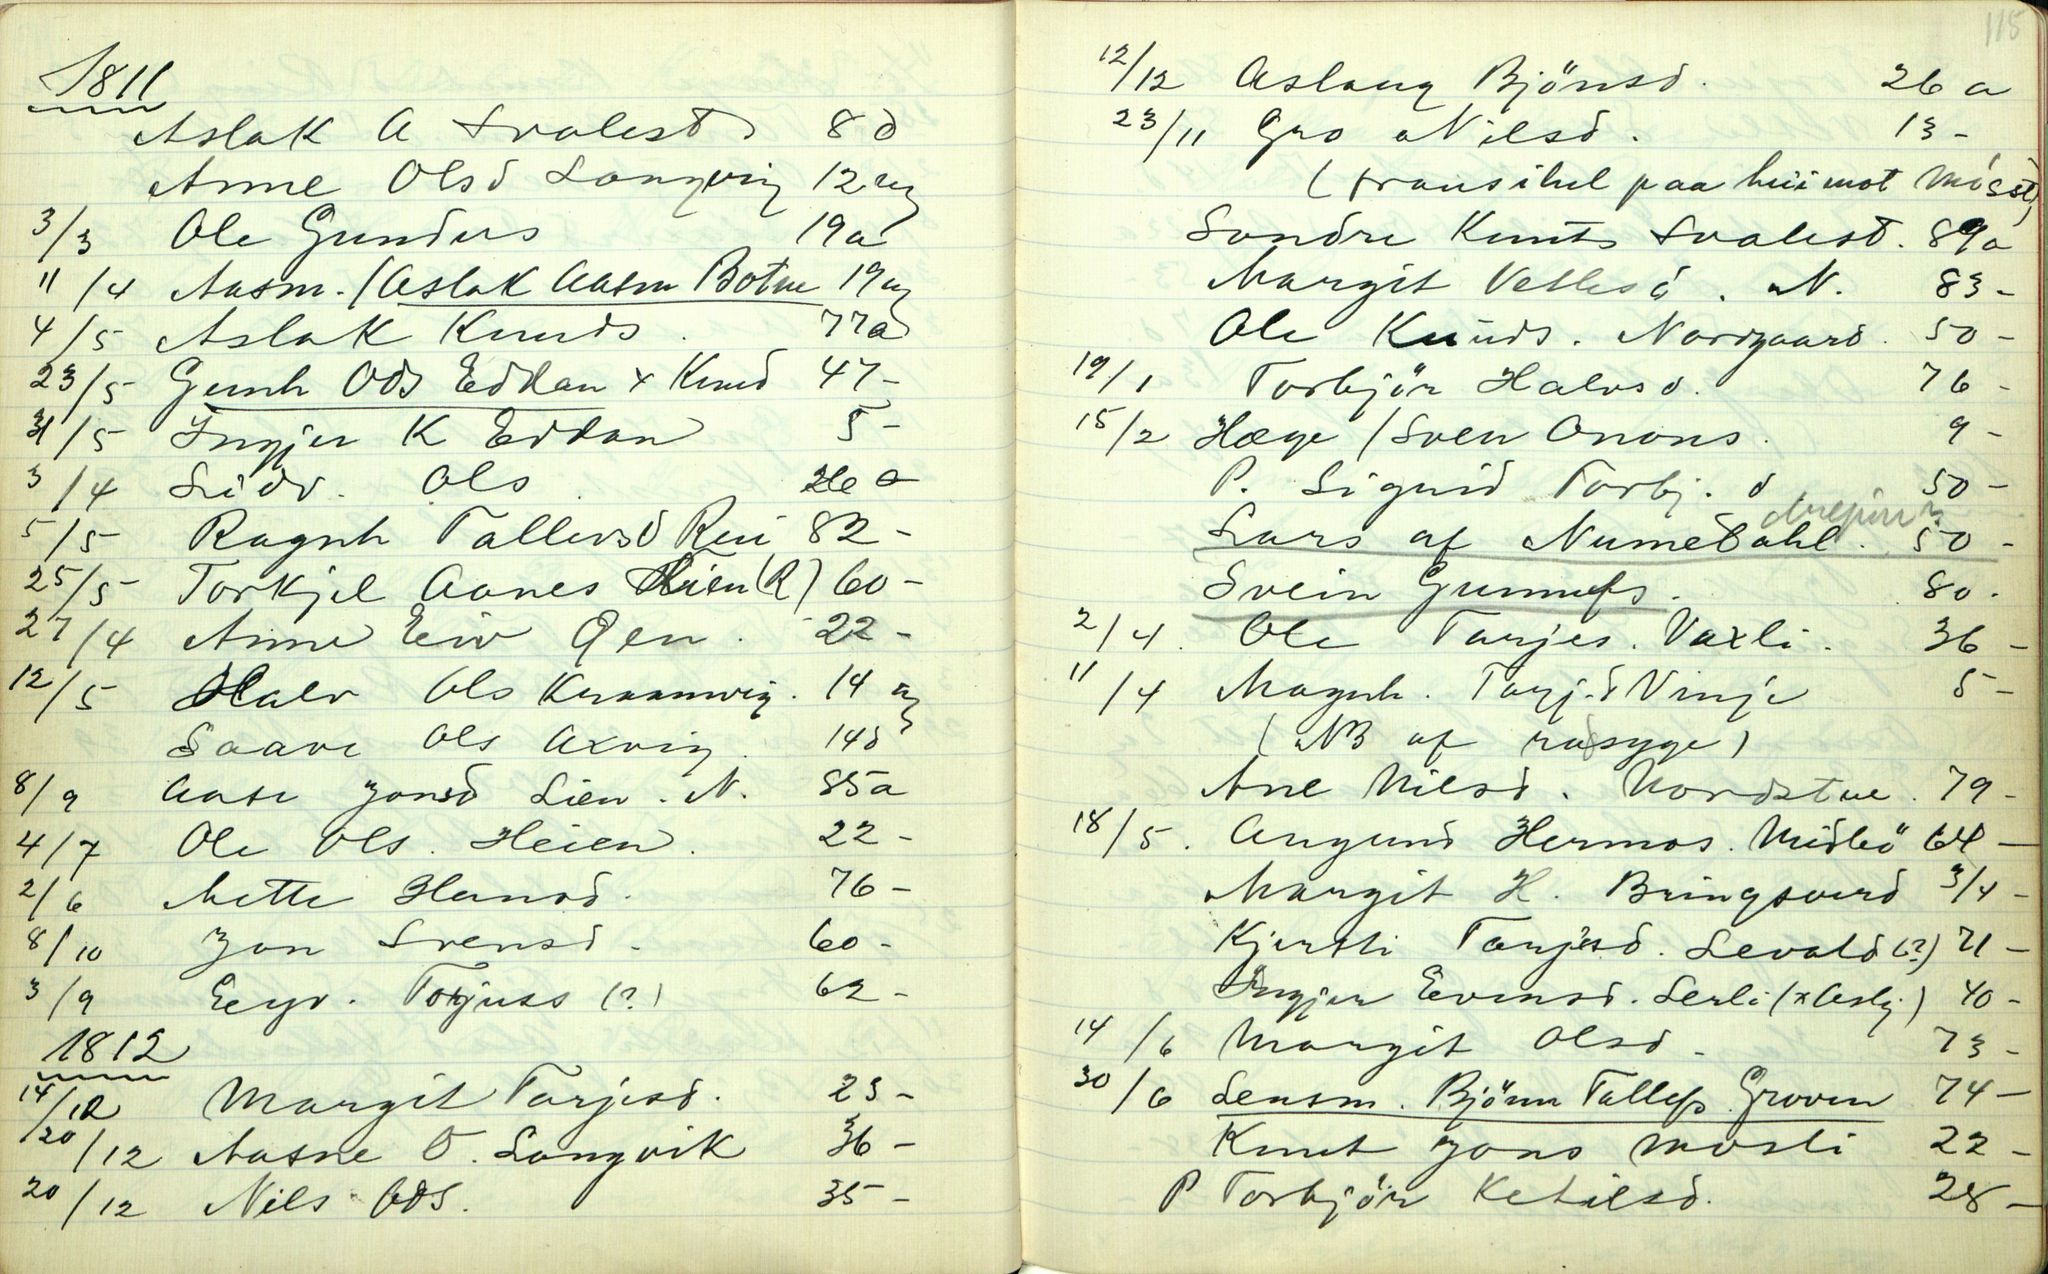 1811
Aslak A Svalest 8 d
Anne Olsd Langvig 12 ug
3/3 Ole Gunders 19 a
11/4 Aasm. (Aslak Aasm Botne 19 ug
4/5 Aslak Knuds. 77 a
23/5 Gunh Ods Eddan x Knud 47 -
31/5 Ingjer K Eddan 5 -
3/4 Sidv. Ols 26 a
5/5 Ragnh Tallevsd Rui 82 -
25/5 Torkjel Aanes (R) 60 -
27/4 Anne Eiv Øen. 22 -
12/5 Halv Ols Kraamvig. 14 ug
Saave Ols Axvig. 14 d
8/9 Aase Jonsd Lien. N. 85 a
4/7 Ole Ols. Heien. 22 -
2/6 Mette Hansd. 76 -
8/10 Jon Svensd. 60 -
3/9 Torjuss (?) 62 -
1812
14/12 Margit Tarjesd. 23 -
20/12 Aasne O. Langvik 36 -
20/12 Nils Ods. 35 -
115
12/12 Aslaug Bjönsd. 26 a
23/11 Gro Nilsd. 13 -
( paa hei mot Mösst)
Sondre Knuts Svalest. 89 a
Margit Vetlesd. N. 83 -
Ole Knuds. Nordgaard. 50 -
19/1 Torbjör Halvsd. 76 -
15/2 Hæge / Sven Onons. 9 -
P. Sigrid Torbj. d 50 -
Lars af Numedahl. 50 -
Svein Gunnufs. 80.
2/4. Ole Tarjes. Vaxli. 36 -
11/4 Magnh. Tarj.d Vinje 5 -
(NB af rasyge)
Ane Nilsd. Nordstue. 79 -
18/5. Augund Hermos. Midbö 64 -
Margit H. Bringsverd 3/4 -
Kjersti Tarjesd. Levald (?) 71 -
Ingjer Evensd. Serli (x Aslj) 40 -
14/6 Margit Olsd. 73 -
30/6 Lensm. Björn Tallefs. Groven 74 -
Knut Jons Mosli 22 -
P Torbjör Ketilsd. 28 -